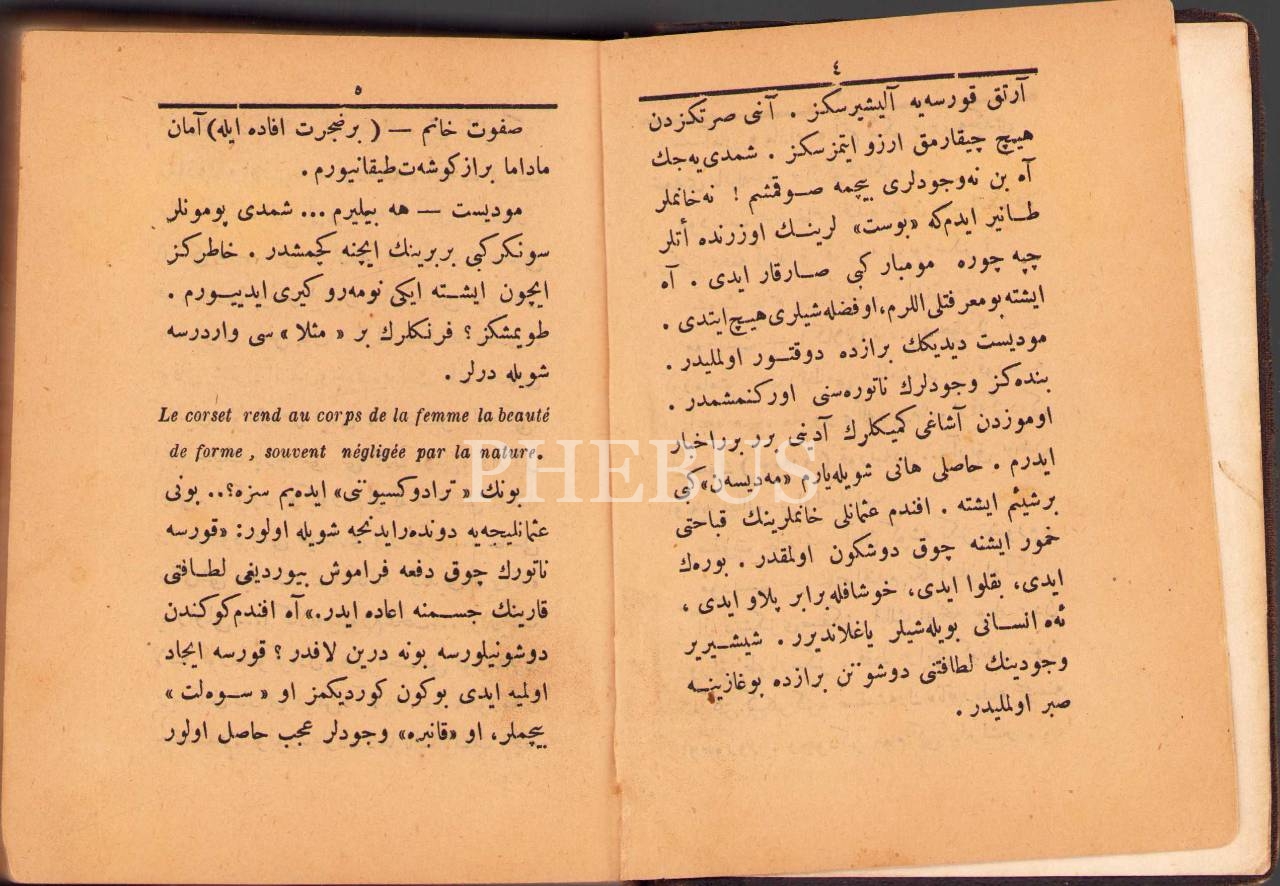 ٤
آرتق قورسه‌یه آلیشیرسكز . آنی صرتكزدن
هیچ چیقارمق ارزو ایتمزسكز . شمدی‌یه‌جك
آه بن نه‌وجودلری بیچمه صوقمشم ! نه‌خانملر
طانیر ایدم‌كه «بوست» لرینك اوزرنده أتلر
چپه چوره مومبار كبی صارقار ایدی . آه
ایشته بومعرفتلی اللرم، او فضله شیلری هیچ ایتدی .
مودیست دیدیكك برازده دوقتور اولملیدر .
بنده‌كز وجودلرك ناتوره‌سنی اوركنمشمدر .
اوموزدن آشاغی كمیكلرك آدنی برر برر اخبار
ایدرم . حاصلی هانی شویله یارم «مه‌دیسه‌ن» كبی
بر شیئم ایشته . افندم عثمانلی خانملرینك قباحتی
خمور ایشنه چوق دوشكون اولمقدر . بوره‌ك
ایدی، بقلوا ایدی، خوشافله برابر پلاو ایدی ،
ئه‌ه انسانی بویله شیلر یاغلاندیرر . شیشیریر
وجودینك لطافتنی دوشونن برازده بوغازینه
صبر اولملیدر .
٥
صفوت خانم — ( بر ضجرت افاده ایله) آمان
ماداما براز كوشه‌ت طیقانیورم .
مودیست — هه بیلیرم ... شمدی پومونلر
سونكر كبی بربرینك ایچنه كچمشدر . خاطركز
ایچون ایشته ایكی نومه‌رو كیری ایدییورم .
طویمشكز ؟ فرنكلرك بر « مثلا » سی واردرسه
شویله درلر .
Le corset rend au corps de la femme la beauté
de forme , souvent négligée par la nature.
بونك « ترادوكسیوننی» ایده‌یم سزه؟.. بونی
عثمانلیجه‌یه دونده‌رایدنجه شویله اولور: «قورسه
ناتورك چوق دفعه فراموش بیوردیغی لطافتی
قارینك جسمنه اعاده ایدر.» آه افندم كوكندن
دوشونیلورسه بونه درین لافدر ؟ قورسه ایجاد
اولمیه ایدی بوكون كوردیكمز او « سوه‌لت »
بیچملر، او «قانبره» وجودلر عجب حاصل اولور
PHEBUS